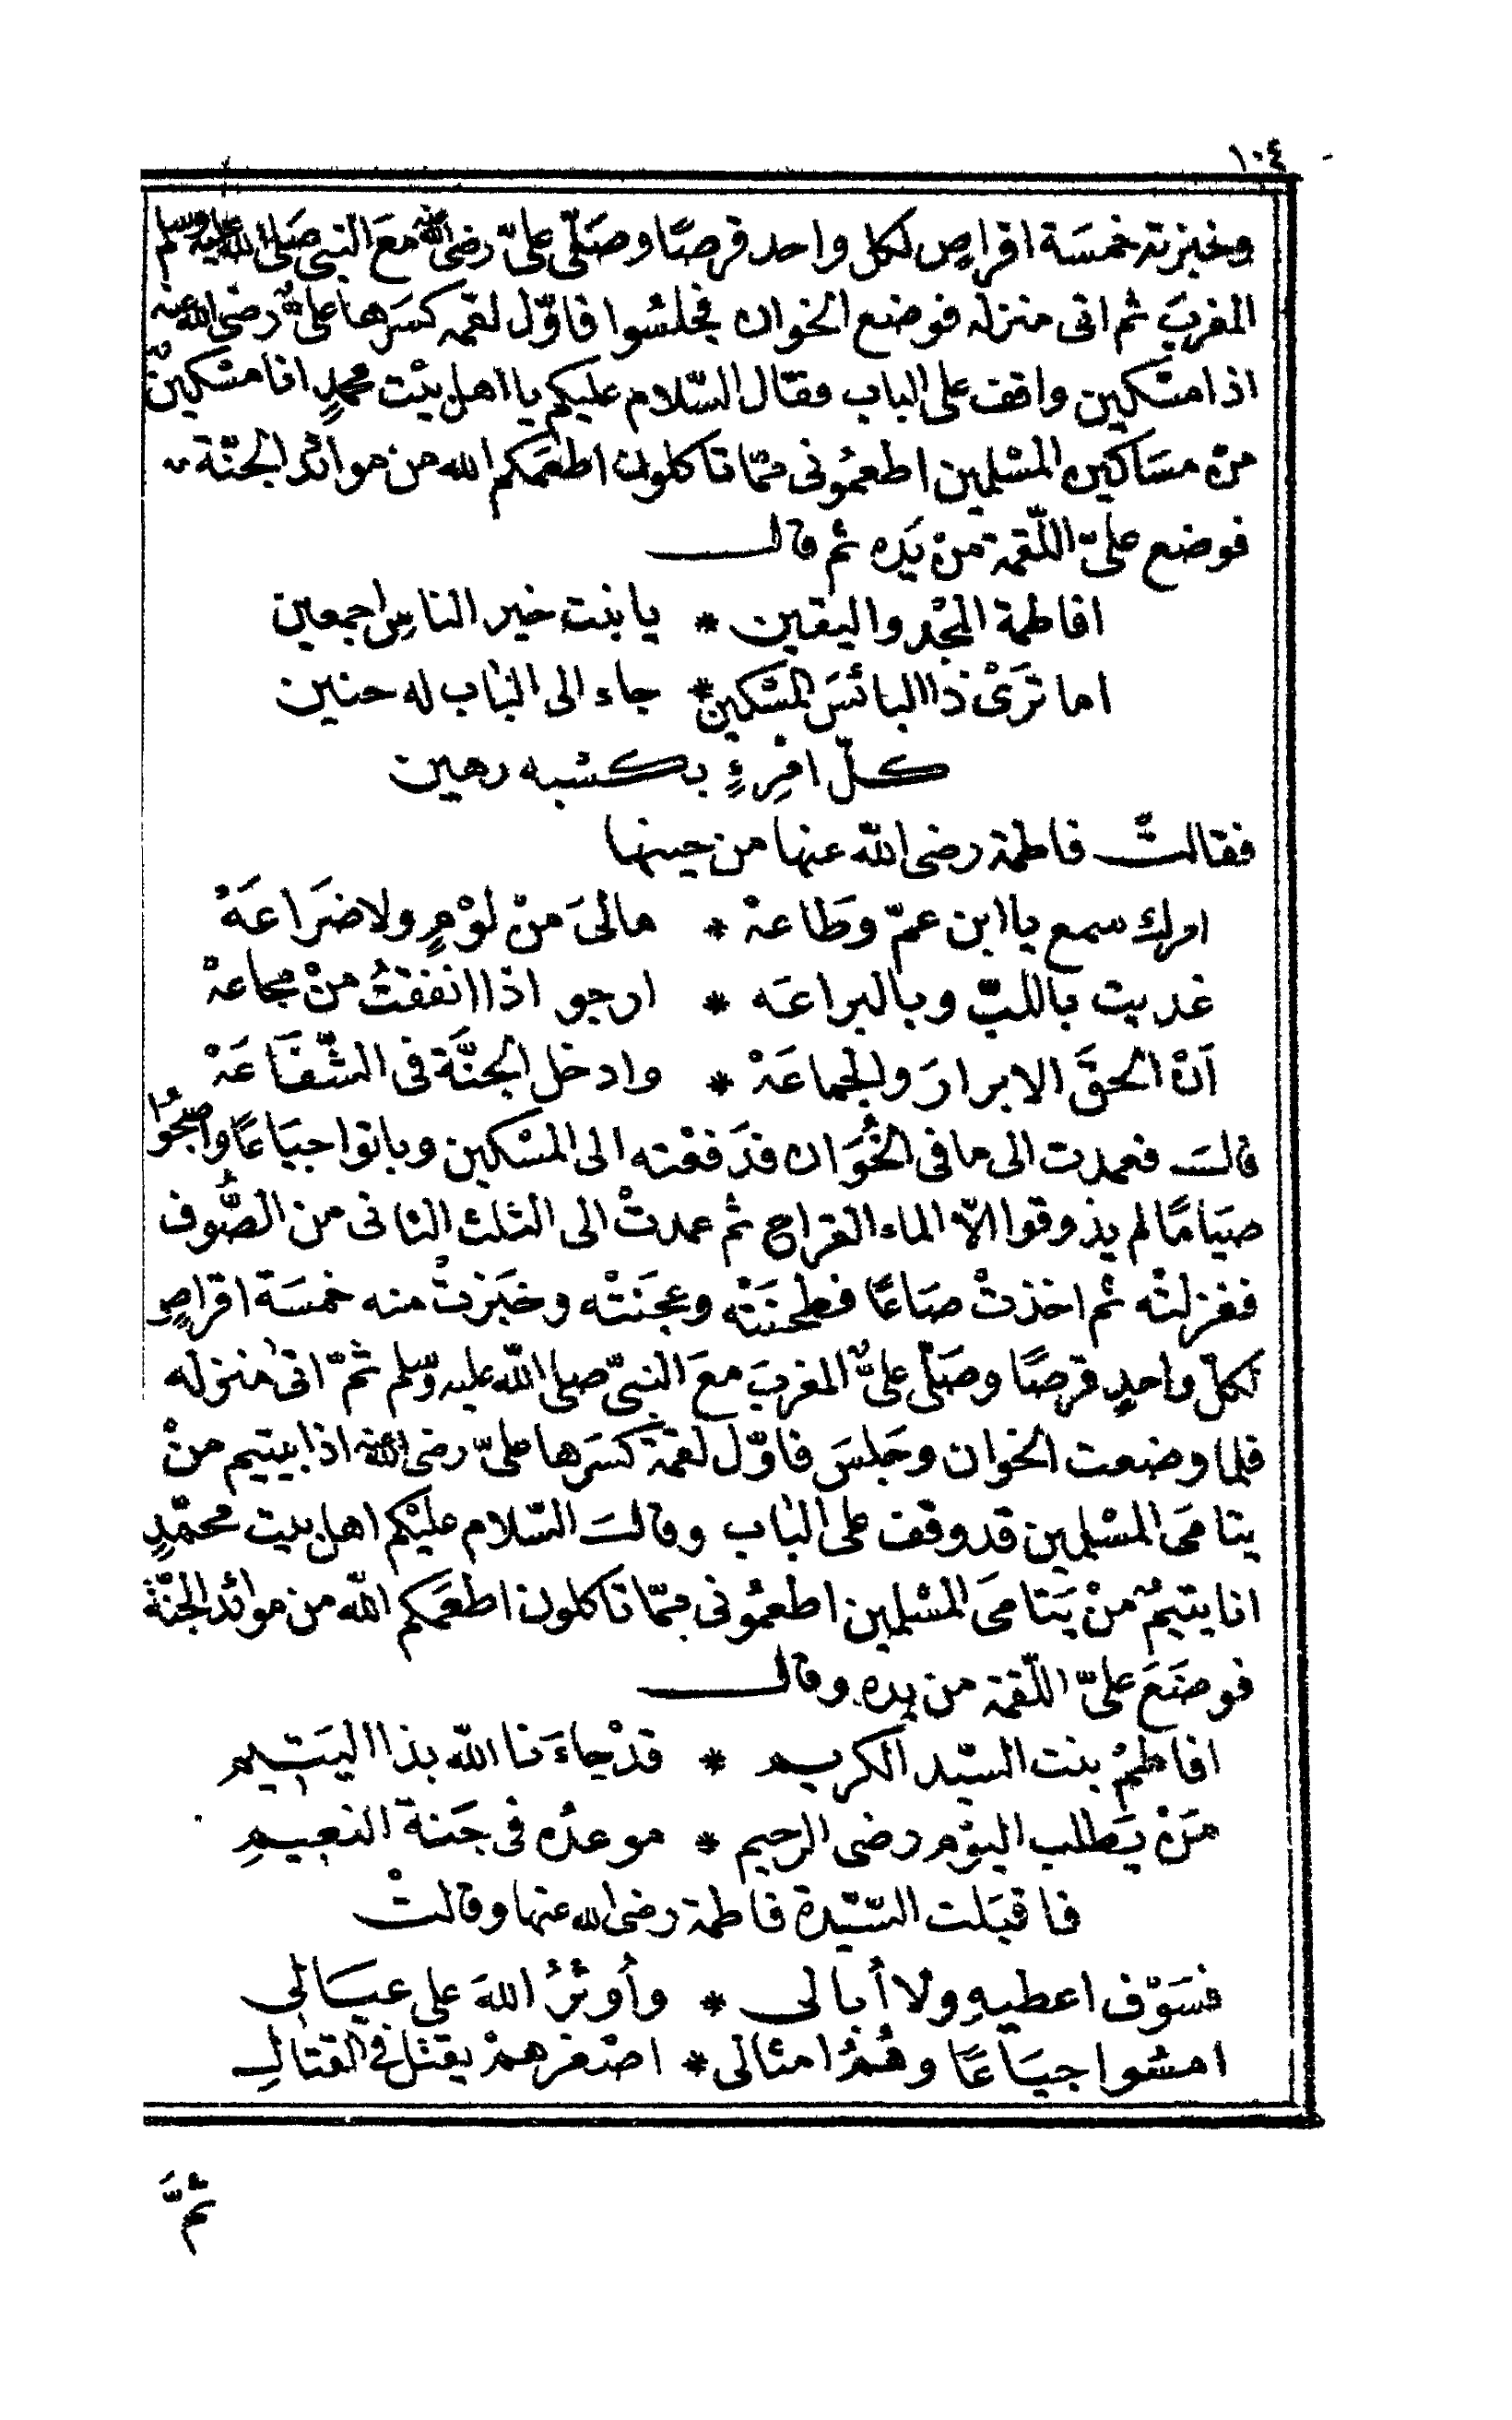 ١٠٤
وخبزته خمسَة اقراصٍ لكل واحد قرصًا وصَلّى علىّ رضى الله مَعَ النبى صَلى الله عليه وسلم
المغربَ ثم اتى منزله فوضع الخوان فجلسُوا فاوّل لقمه كسَرها علىّ رضى الله عنه
اذا مسْكين واقف على الباب فقال السّلام عليكم يا اهل بيْت محمدٍ انا مسْكينٌ
منْ مسَاكين المسْلمين اطعمُونى ممّا تاكلون اطعَمكم الله من موائد الجنّة
فوضع علىّ اللّقمة منْ يَده ثم قال
افاطمة المجْد واليقين * يا بنت خير الناسِ اجمعين
اما تَرَىْ ذا البائسَ المسْكين * جاء الى البَاب له حنين
كلّ امْرِءٍ بكسْبه رهين
فقالتْ فاطمة رضى الله عنها من حينها
امرك سمع يا ابن عمّ وَطَاعهْ * مالىَ منْ لوْمٍ ولا ضَرَاعَهْ
غديت باللبّ وبالبراعَه * ارجو اذا انفقتُ منْ مجاعهْ
اَنْ الحقَ الابرارَ والجماعَهْ * وادخل الجنَّة فى الشّفَاعَهْ
قالت فعمدت الى ما فى الخُوَان فدَفعْته الى المسْكين وباتوا جيَاعًا واصبحُوا
صيَامًا لم يذوقوا الاّ الماء القراح ثم عمدتْ الى الثلث الثانى من الصُّوف
فغزلتْه ثم اخذتْ صَاعًا فطحنَتْه وعجَنَتْه وخبَزتْ منه خمسَة اقراصٍ
لكلّ واحدٍ قرصًا وصَلّى علىٌّ المغربَ معَ النبىّ صلى الله عليه وسلم ثمّ اتى منزله
فلما وضعت الخوان وجَلسَ فاوّل لقمة كسَرها علىّ رضى الله عنه اذا بيتيم منْ
يتامَى المسْلمين قد وقف على البَاب وقالَ السّلام عليْكم اهل بيت محمّدٍ
انا يتيمٌ منْ يَتامَى المسْلمين اطعمُونى ممّا تاكلون اطعَمكم الله من موائد الجنّة
فوضَعَ علىّ اللّقمة من يده وقال
افاطمُ بنت السّيّد الكريم * قدْ جاءَنا الله بذا اليَتيم
مَنْ يَطلب اليوْم رضى الرحيم * موعدُه فى جَنة النعيمِ
فاقبَلت السّيّدة فاطمة رضى الله عنها وقالتْ
فسَوْف اعطيهِ ولا أُبالى * وأُوثرُ اللهَ على عيَالى
امسُوا جيَاعًا وهُمْ امثالى * اصْغرهمْ يقتل فى القتالِ
ثمَّ